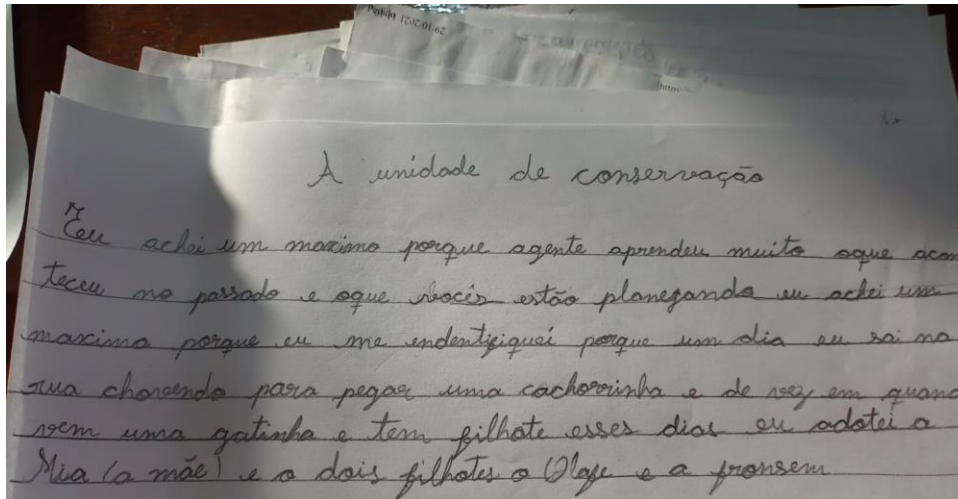 29.10.2021
A unidade de conservação
Eu achei um maximo porque agente aprendeu muito oque acon
teceu no passado e oque vocês estão planegando eu achei um
maximo porque eu me endentifiquei porque um dia eu sai na
rua chovendo para pegar uma cachorrinha e de vez em quand
vem uma gatinha e tem filhote esses dias eu adotei a
Mia (a mãe) e o dois filhotes o Olafe e a fronsem